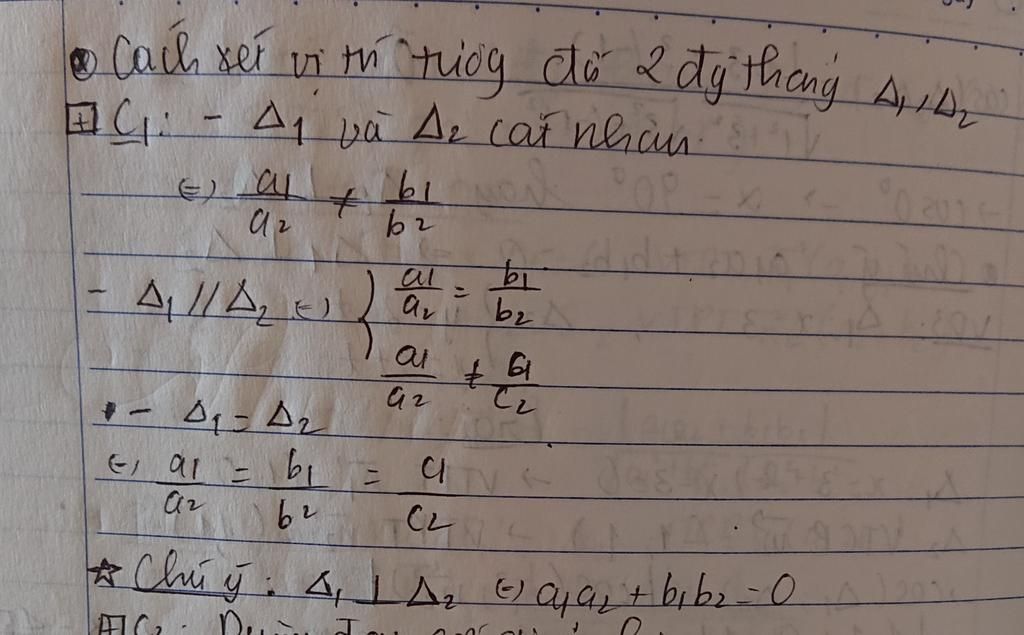 Cách xét vị trí tương đối 2 đg thẳng Δ1, Δ2
C1: - Δ1 và Δ2 cắt nhau
⇔ a1/a2 ≠ b1/b2
- Δ1 // Δ2 ⇔ { a1/a2 = b1/b2
a1/a2 ≠ c1/c2
- Δ1 = Δ2
⇔ a1/a2 = b1/b2 = c1/c2
☆ Chú ý: Δ1 ⊥ Δ2 ⇔ a1a2 + b1b2 = 0
C2: